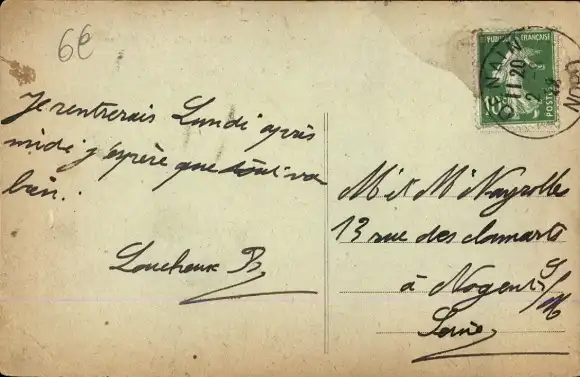 6€
Je rentrerais Lundi après
midi j'espère que tout va
bien..
Loucheux B
RÉPUBLIQUE FRANÇAISE
POSTES
11 20
NORD
M. et Me Nayrolles
13 rue des clamarts
à Nogent S/M
Seine